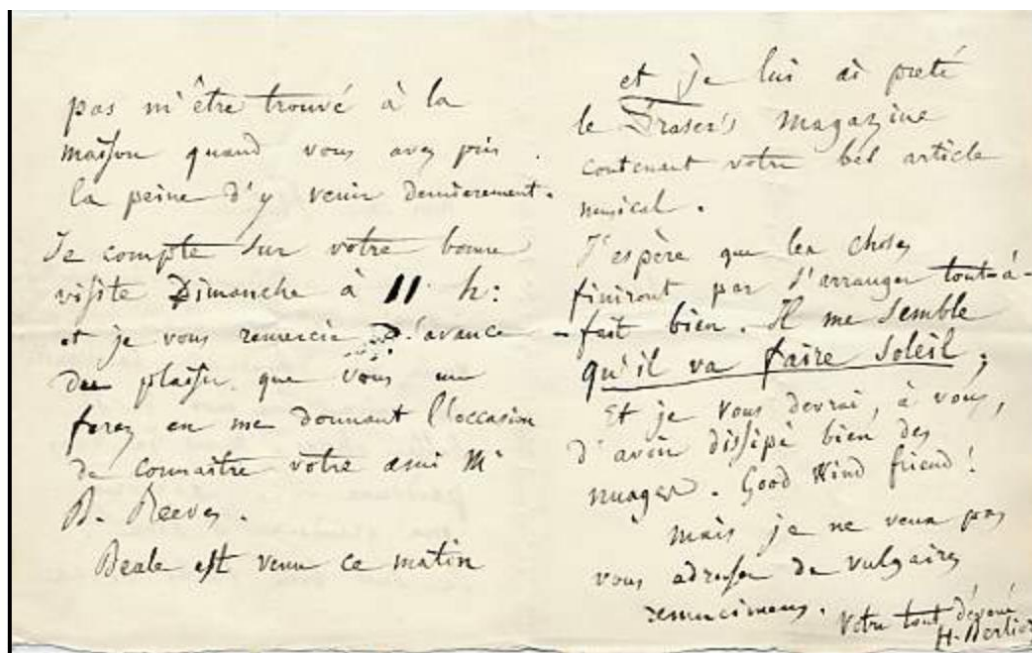 pas m'être trouvé à la
maison quand vous avez pris
la peine d'y venir dernierement.
Je compte sur votre bonne
visite Dimanche à 11 h:
et je vous remercie D'avance
du plaisir que vous me
ferez en me donnant l'occasion
de connaitre votre ami Mr
B. Reeves.
Beale est venu ce matin
et je lui ai preté
le Fraser's Magazine
contenant votre bel article
musical.
J'espère que les choses
finiront par s'arranger tout-à-
-fait bien. Il me semble
qu'il va faire soleil;
Et je vous devrai, à vous,
d'avoir dissipé bien des
nuages. Good Kind friend!
Mais je ne veux pas
vous adresser de vulgaires
remerciemens.
Votre tout dévoué
H. Berlioz